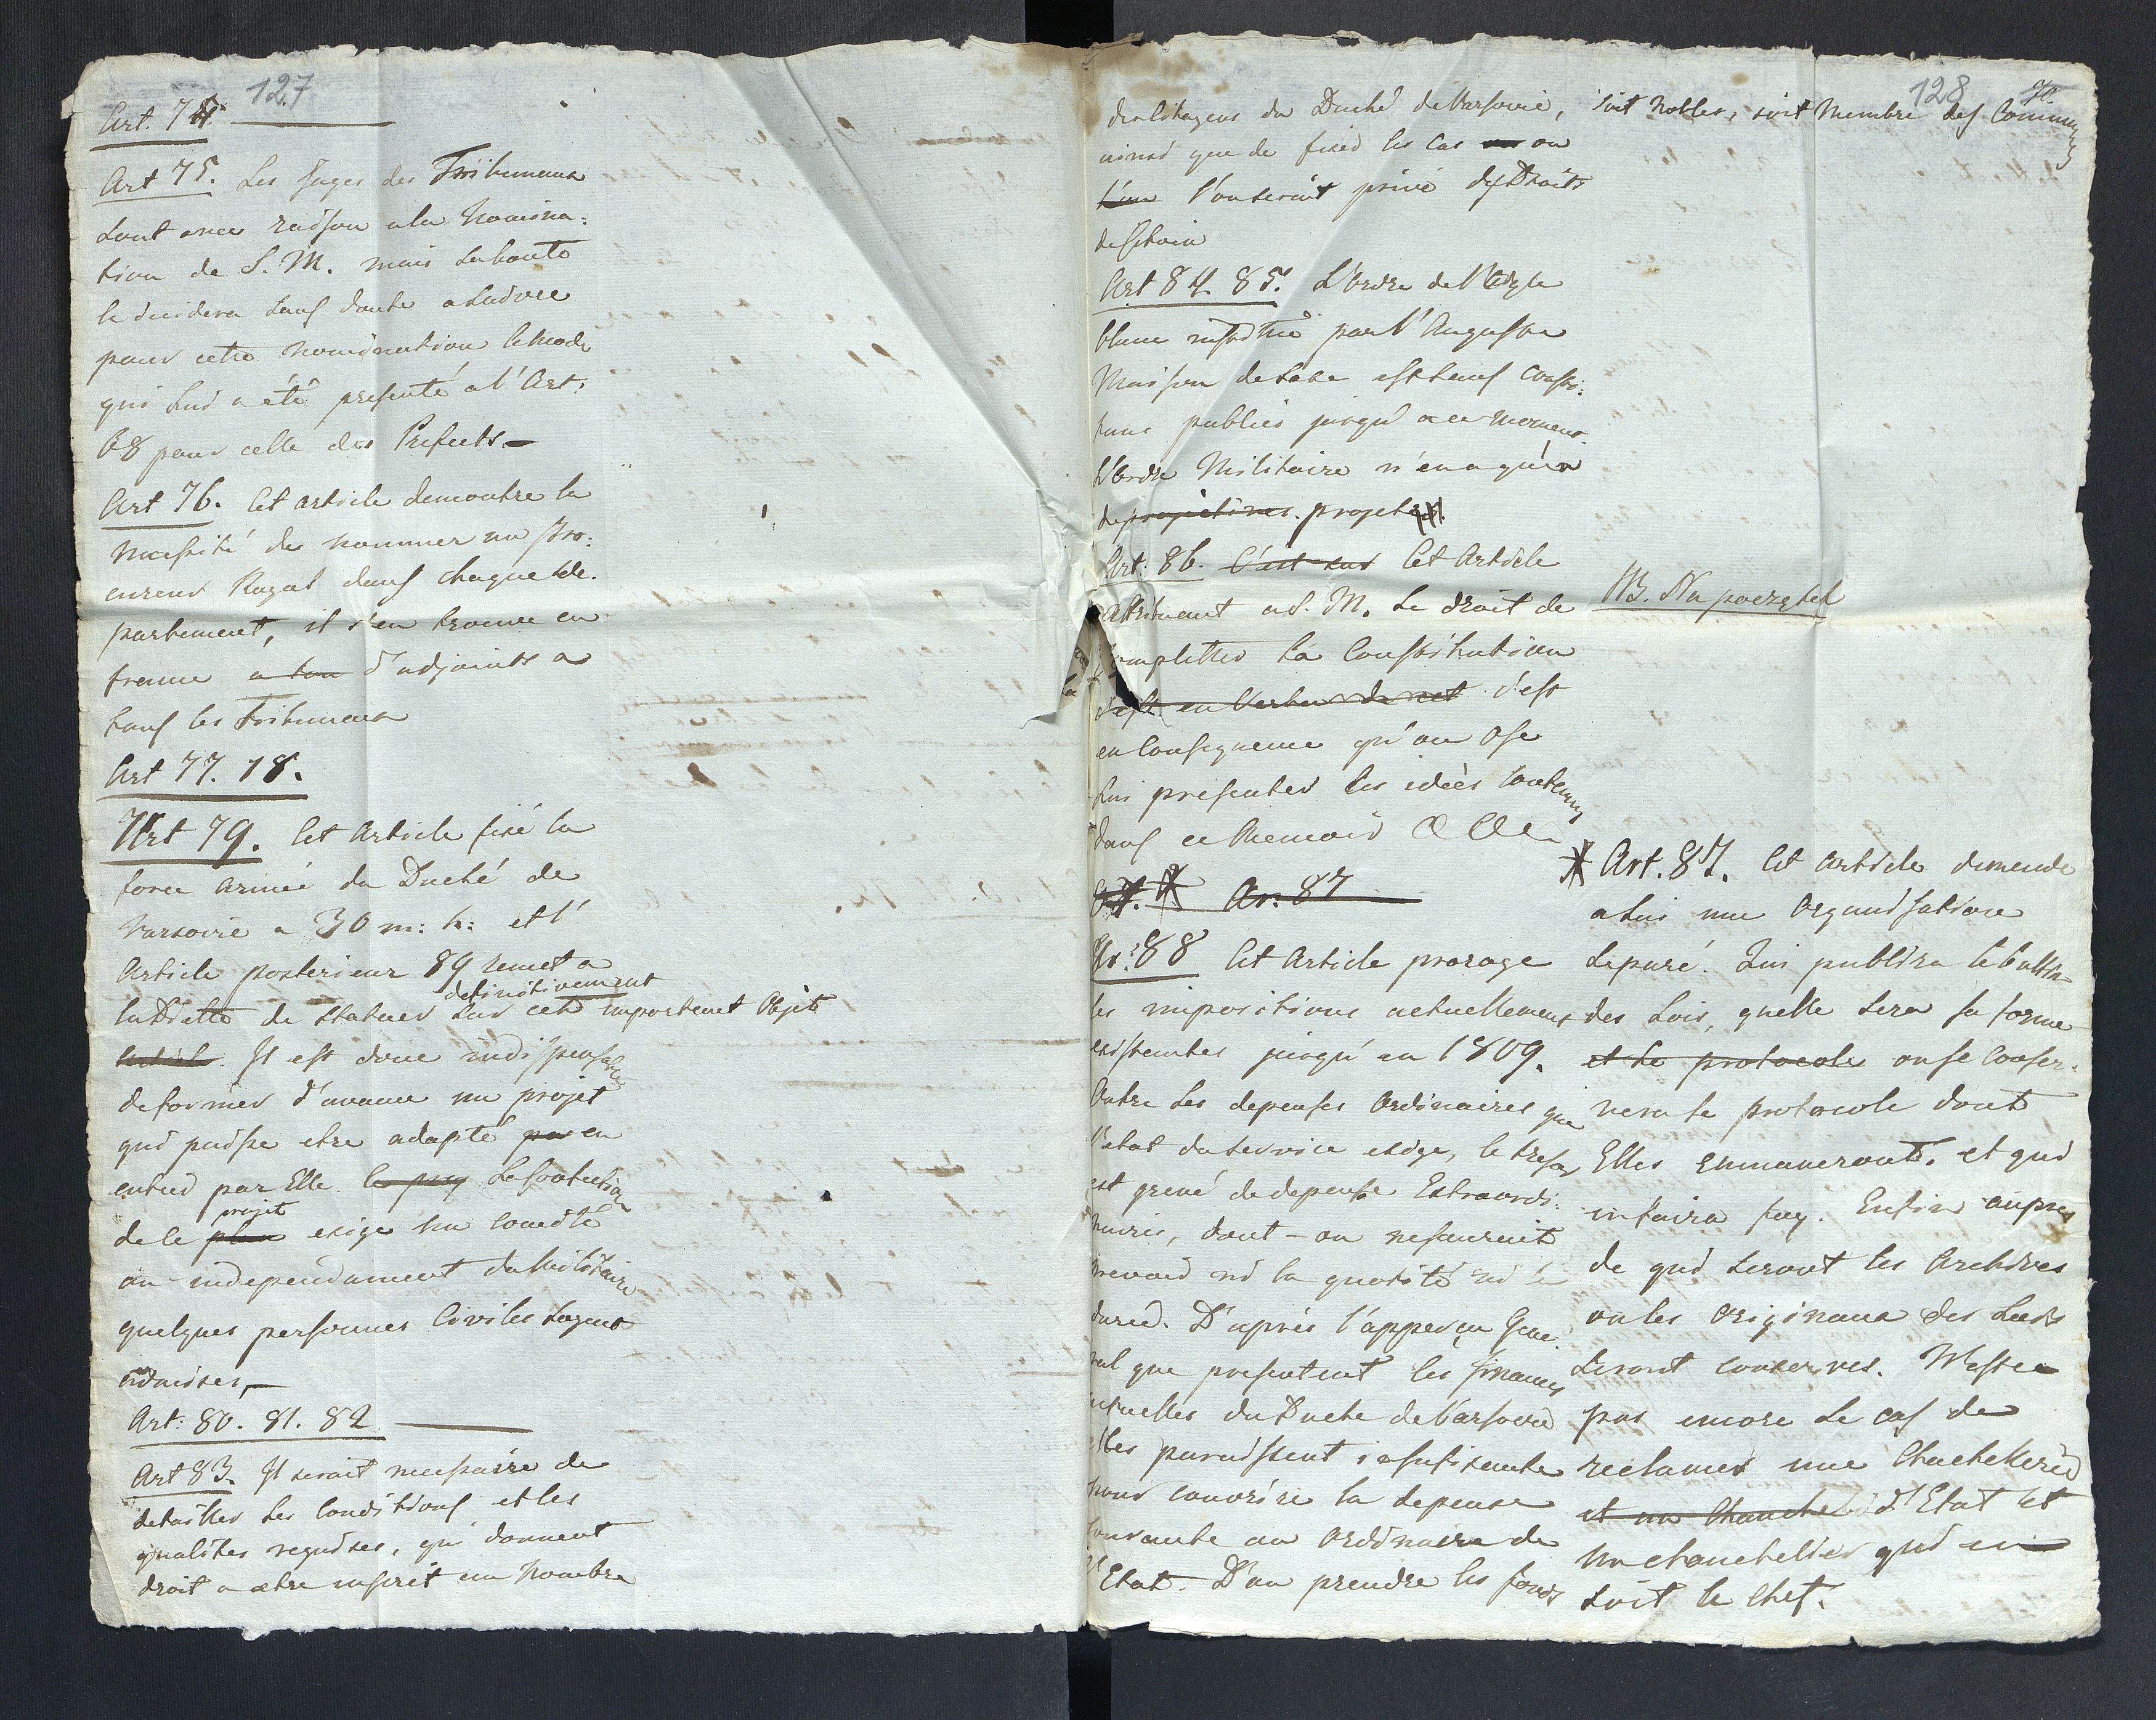 127
Art. 74.
Art 75. Les Juges des Tribunaux
sont avec raison a la Nomina:
tion de S. M. mais sa bonté
le decidera sans doute a suivre
pour cette nomination le mode
qui lui a été presenté a l'Art:
68 pour celle des Prefects.—
Art 76. Cet article demontre la
necessité de nommer un Pro:
cureur Royal dans chaque de.
partement, il s'en trouve en
france a tou d'adjoints a
tous les Tribunaux
Art 77. 78.
Art 79. Cet Article fixe la
force Armée du Duché de
Varsovie a 30 m: h: et l'
Article posterieur 89 remet a
definitivement
la Diette de statuer sur cet important Objet
Il est donc indispensable
de former d'avance un projet
qui puisse etre adapté en
entier par Elle. La confection
projet
de le plan exige un Comité
ou independament du Militaire
quelques personnes Civiles soyent
admises,—
Art: 80. 81. 82
Art 83. Il seroit necessaire de
detailler les Conditions et les
qualités requises, qui donnent
droit a etre inscrit au Nombre
128
70.
des Citoyens du Duché de Varsovie, soit Nobles, soit Membre des Communes
ainsi que de fixer les cas ou
l'on l'on seroit privé des Droits
de Citoien
Art 84. 85. L'Ordre de l'Aigle
blanc institué par l'Auguste
Maison de Saxe est sans Consti:
tuns publics jusqu'a ce moment.
L'Ordre Militaire n'en a qu'en
de projections. projet.
Art: 86. C'est sur Cet Article
attribuant a S. M. le droit de
completter la Constitution
c'est en Vertu de cet c'est
en Consequence qu'on Ose
Lui presenter les idées Contenues
dans ce Memoir
Ar: 87
Ar: 88 Cet Article proroge
les impositions actuellement
existentes jusqu'en 1809.
Outre les depenses Ordinaires que
l'etat du service exige, le tresor
est grevé de depense Extraordi:
naires, dont - on ne sauroit
prevoir ni la quotité ni la
durée. D'après l'apperçu Gene
ral que presentent les finances
actuelles du Duché de Varsovie
elles paroissent insufisantes
pour couvrire la depense
courante au Ordinaire de
l'Etat. D'ou prendre les fonds
NB. Na początek
* Art. 87. Cet Article demende
a lui une Organisation
separé. Qui publira le bultin
des Lois, quelle sera sa forme
et le protocole ou se Conser.
vera le protocole dont
Elles emmaneront. et qui
en faira foy. Enfin aupres
de qui seront les Archives
ou les Originaux des Lois
seront conservés. N'est ce
pas encore le cas de
reclamer une Chancellerie
et un Chancelier d'Etat et
un chancellier qui en
soit le chef.